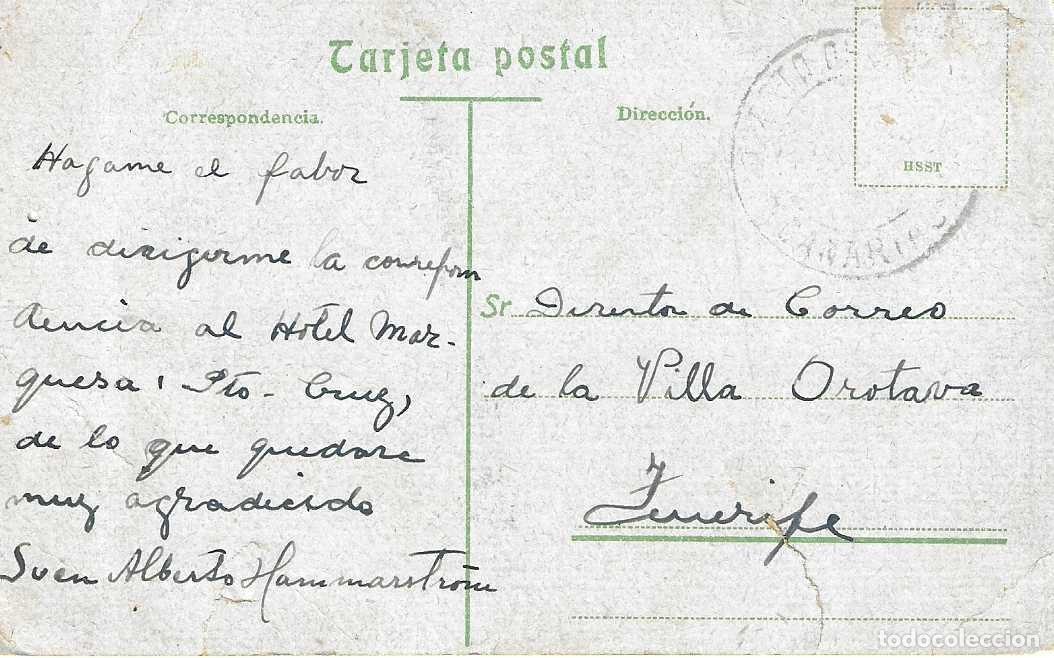 Tarjeta postal
Correspondencia.
Dirección.
HSST
Hagame el fabor
de dirigirme la correspon
dencia al Hotel Mar-
quesa, Pto - Cruz,
de lo que quedare
muy agradiesdo
Sven Alberto Hammarström
Sr Director de Correo
de la Villa Orotava
Tenerife
todocoleccion